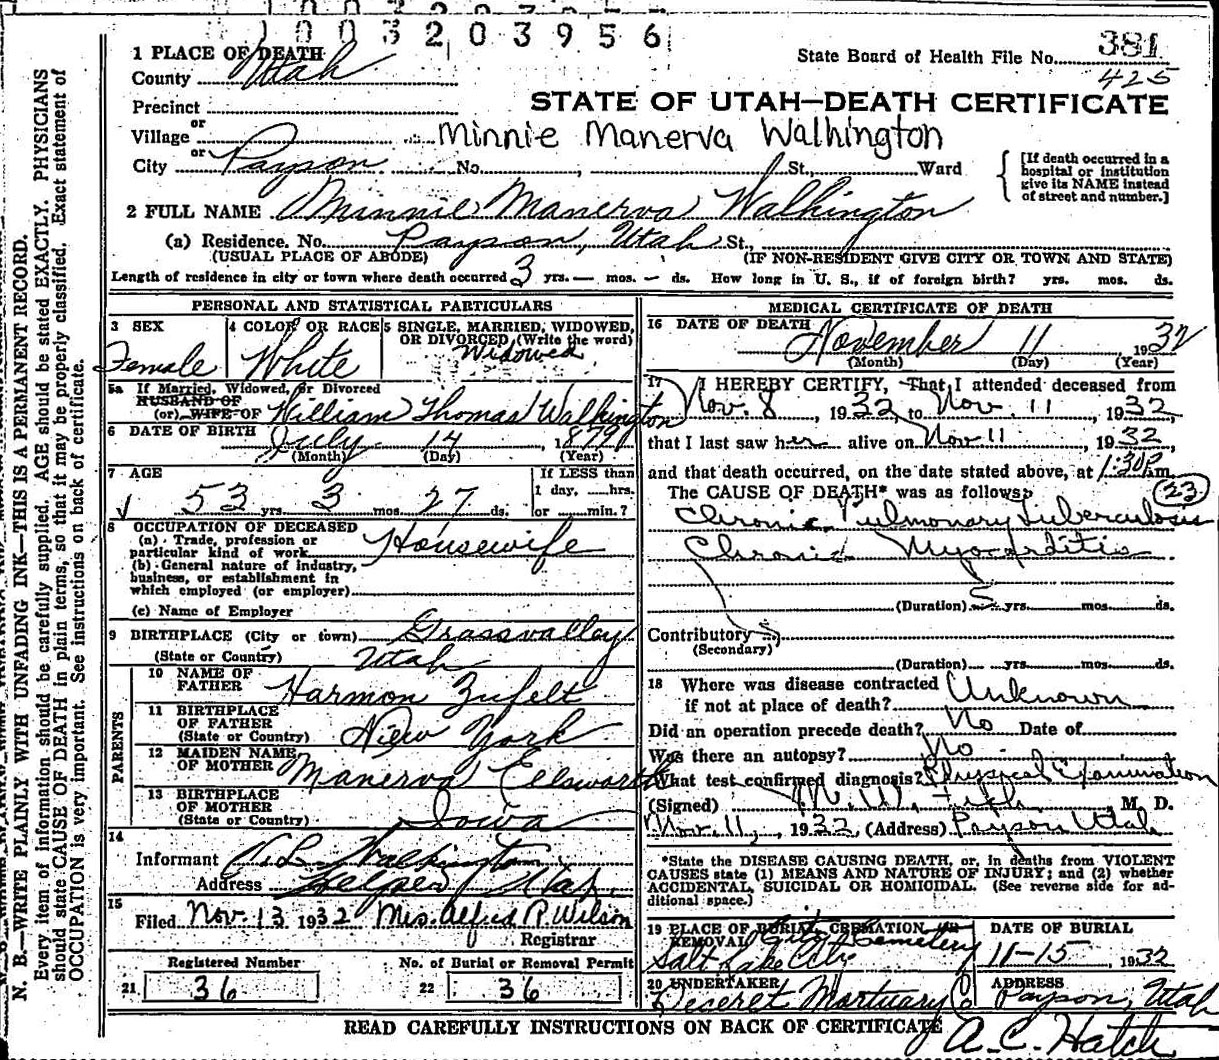 1003203956
381
State Board of Health File No.
425
1 PLACE OF DEATH
County Utah
STATE OF UTAH—DEATH CERTIFICATE
Precinct
or
Village
Minnie Manerva Walkington
or
City Payson No. , St., Ward
[If death occurred in a hospital or institution give its NAME instead of street and number.]
2 FULL NAME Minnie Manerva Walkington
(a) Residence. No. Payson, Utah St.,
(USUAL PLACE OF ABODE) (IF NON-RESIDENT GIVE CITY OR TOWN AND STATE)
Length of residence in city or town where death occurred 3 yrs. — mos. — ds. How long in U. S., if of foreign birth? yrs. mos. ds.
PERSONAL AND STATISTICAL PARTICULARS
3 SEX
Female
4 COLOR OR RACE
White
5 SINGLE, MARRIED, WIDOWED, OR DIVORCED (Write the word)
Widowed
5a If Married, Widowed, or Divorced
HUSBAND OF
(or) WIFE OF William Thomas Walkington
6 DATE OF BIRTH July 14 1879
(Month) (Day) (Year)
7 AGE
53 yrs. 3 mos. 27 ds.
If LESS than
1 day, ....hrs.
or ....min.?
8 OCCUPATION OF DECEASED
(a) Trade, profession or
particular kind of work Housewife
(b) General nature of industry,
business, or establishment in
which employed (or employer)
(c) Name of Employer
9 BIRTHPLACE (City or town) Grassvalley
(State or Country) Utah
PARENTS
10 NAME OF FATHER Harmon Zufelt
11 BIRTHPLACE OF FATHER (State or Country) New York
12 MAIDEN NAME OF MOTHER Manerva Ellsworth
13 BIRTHPLACE OF MOTHER (State or Country) Iowa
14
Informant L. Walkington
Address Helper, Utah
15
Filed Nov. 13 1932 Mrs. Alfred P. Wilson
Registrar
Registered Number
21 36
No. of Burial or Removal Permit
22 36
MEDICAL CERTIFICATE OF DEATH
16 DATE OF DEATH
November 11 1932
(Month) (Day) (Year)
17 I HEREBY CERTIFY, That I attended deceased from
Nov. 8, 1932, to Nov. 11, 1932
that I last saw her alive on Nov 11, 1932
and that death occurred, on the date stated above, at 1:30 P m.
The CAUSE OF DEATH* was as follows:
23
Chronic Pulmonary Tuberculosis
Chronic Myocarditis
(Duration) yrs. mos. ds.
Contributory
(Secondary)
(Duration) yrs. mos. ds.
18 Where was disease contracted
if not at place of death? Unknown
Did an operation precede death? No Date of
Was there an autopsy? No
What test confirmed diagnosis? Physical Examination
(Signed) M. D.
Nov. 11, 1932 (Address) Payson Utah
*State the DISEASE CAUSING DEATH, or, in deaths from VIOLENT
CAUSES state (1) MEANS AND NATURE OF INJURY; and (2) whether
ACCIDENTAL, SUICIDAL OR HOMICIDAL. (See reverse side for additional space.)
19 PLACE OF BURIAL, CREMATION OR REMOVAL
City Cemetery
Salt Lake City
DATE OF BURIAL
11-15, 1932
20 UNDERTAKER
Deseret Mortuary Co
ADDRESS
Payson, Utah
A. C. Hatch
READ CAREFULLY INSTRUCTIONS ON BACK OF CERTIFICATE
N. B.—WRITE PLAINLY WITH UNFADING INK—THIS IS A PERMANENT RECORD.
Every item of information should be carefully supplied. AGE should be stated EXACTLY. PHYSICIANS
should state CAUSE OF DEATH in plain terms, so that it may be properly classified. Exact statement of
OCCUPATION is very important. See instructions on back of certificate.